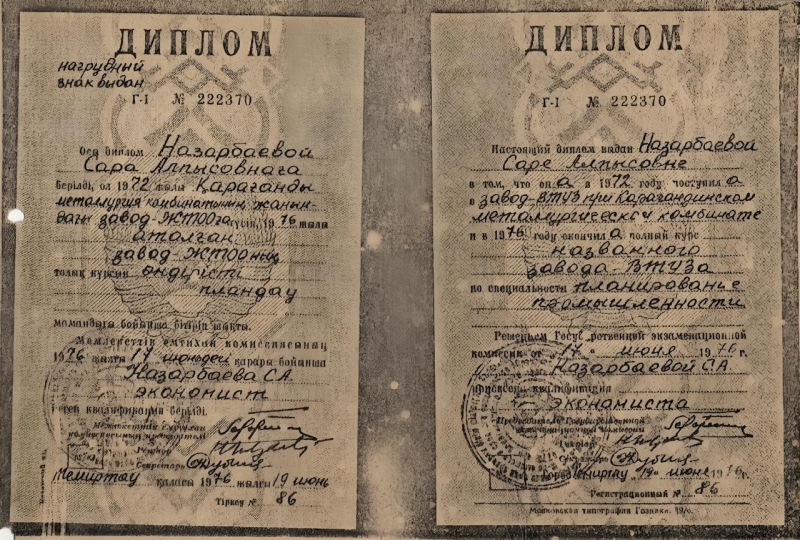 ДИПЛОМ
нагрудный
знак выдан
Г-I № 222370
Осы диплом Назарбаевой
Сара Алпысовнаға
берілді, ол 1972 жылы Караганды
металлургия комбинатының жанын-
дағы завод-ЖТОО-ға түсіп, 1976 жылы
аталған
завод-ЖТООның
толық курсын өндірісті
пландау
мамандығы бойынша бітіріп шықты.
Мемлекеттік емтихан комиссиясының
1976 жылғы 17 июньдегі қарары бойынша
Назарбаева С.А.
экономист
деген квалификация берілді.
Ректор
Секретарь
Темиртау қаласы 1976 жылғы 19 июнь
Тіркеу № 86
ДИПЛОМ
Г-I № 222370
Настоящий диплом выдан Назарбаевой
Саре Алпысовне
в том, что он а в 1972 году поступил а
в завод-ВТУЗ при Карагандинском
металлургическом комбинате
и в 1976 году окончил а полный курс
названного
завода-ВТУЗа
по специальности планирование
промышленности
Решением Государственной экзаменационной
комиссии от "17" июня 1976 г.
Назарбаевой С.А.
присвоена квалификация
экономиста
Председатель Государственной
экзаменационной комиссии
Ректор
Секретарь
Город Темиртау 19 июня 1976 г.
Регистрационный № 86
Московская типография Гознака. 1970.